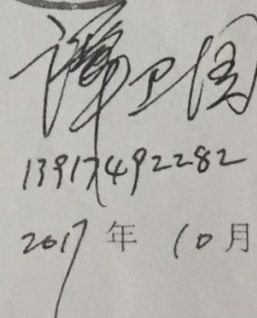 谭卫国
13917492282
2017 年 10 月